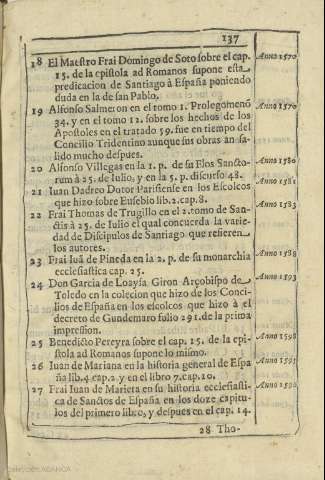 137
18 El Maestro Frai Domingo de Soto sobre el cap. Anno 1570
15. de la epistola ad Romanos supone esta
predicacion de Santiago à España poniendo
duda en la de san Pablo.
19 Alfonso Salmeron en el tomo 1. Prolegomenō Anno 1570
34. y en el tomo 12. sobre los hechos de los
Apostoles en el tratado 59. fue en tiempo del
Concilio Tridentino aunque sus obras an sa-
lido mucho despues.
20 Alfonso Villegas en la 1. p. de su Flos Sancto- Anno 1580
rum à 25. de Iulio, y en la 5. p. discurso 48.
21 Iuan Dadreo Dotor Parisiense en los Escolcos Anno 1581
que hizo sobre Eusebio lib. 2. cap. 8.
22 Frai Thomas de Trugillo en el 2. tomo de San- Anno 1583
ctis à 25. de Iulio el qual concuerda la varie-
dad de Discipulos de Santiago que refieren
los autores.
23 Frai Iuā de Pineda en la 2. p. de su monarchia Anno 1588
ecclesiastica cap. 25.
24 Don Garcia de Loaysa Giron Arçobispo de Anno 1593
Toledo en la colecion que hizo de los Conci-
lios de España en los escolcos que hizo à el
decreto de Gundemaro folio 291. de la prima
impression.
25 Benedicto Pereyra sobre el cap. 15. de la epi- Anno 1598
stola ad Romanos supone lo mismo.
26 Iuan de Mariana en la historia general de Espa Anno 1595
ña lib. 4. cap. 2. y en el libro 7. cap. 10.
27 Frai Iuan de Marieta en su historia ecclesiasti- Anno 1596
ca de Sanctos de España en los doze capitu-
los del primero libro, y despues en el cap. 14.
28 Tho-